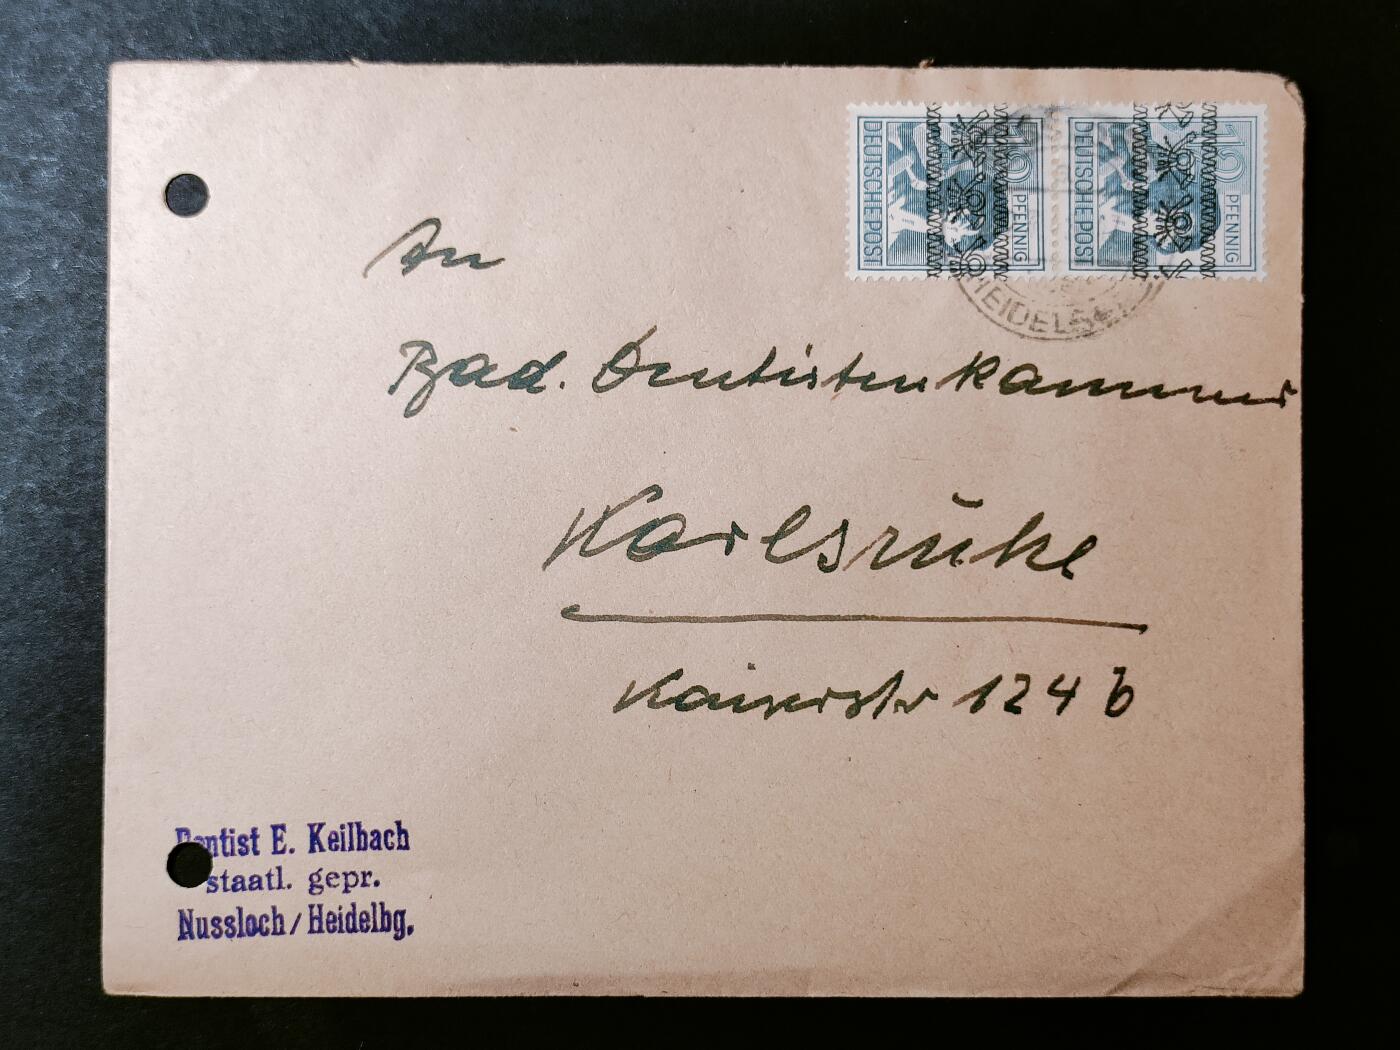 DEUTSCHE POST
12 PFENNIG
DEUTSCHE POST
12 PFENNIG
An
Bad. Dentistenkammer
Karlsruhe
Kaiserstr 124 b
Dentist E. Keilbach
staatl. gepr.
Nussloch/Heidelbg.